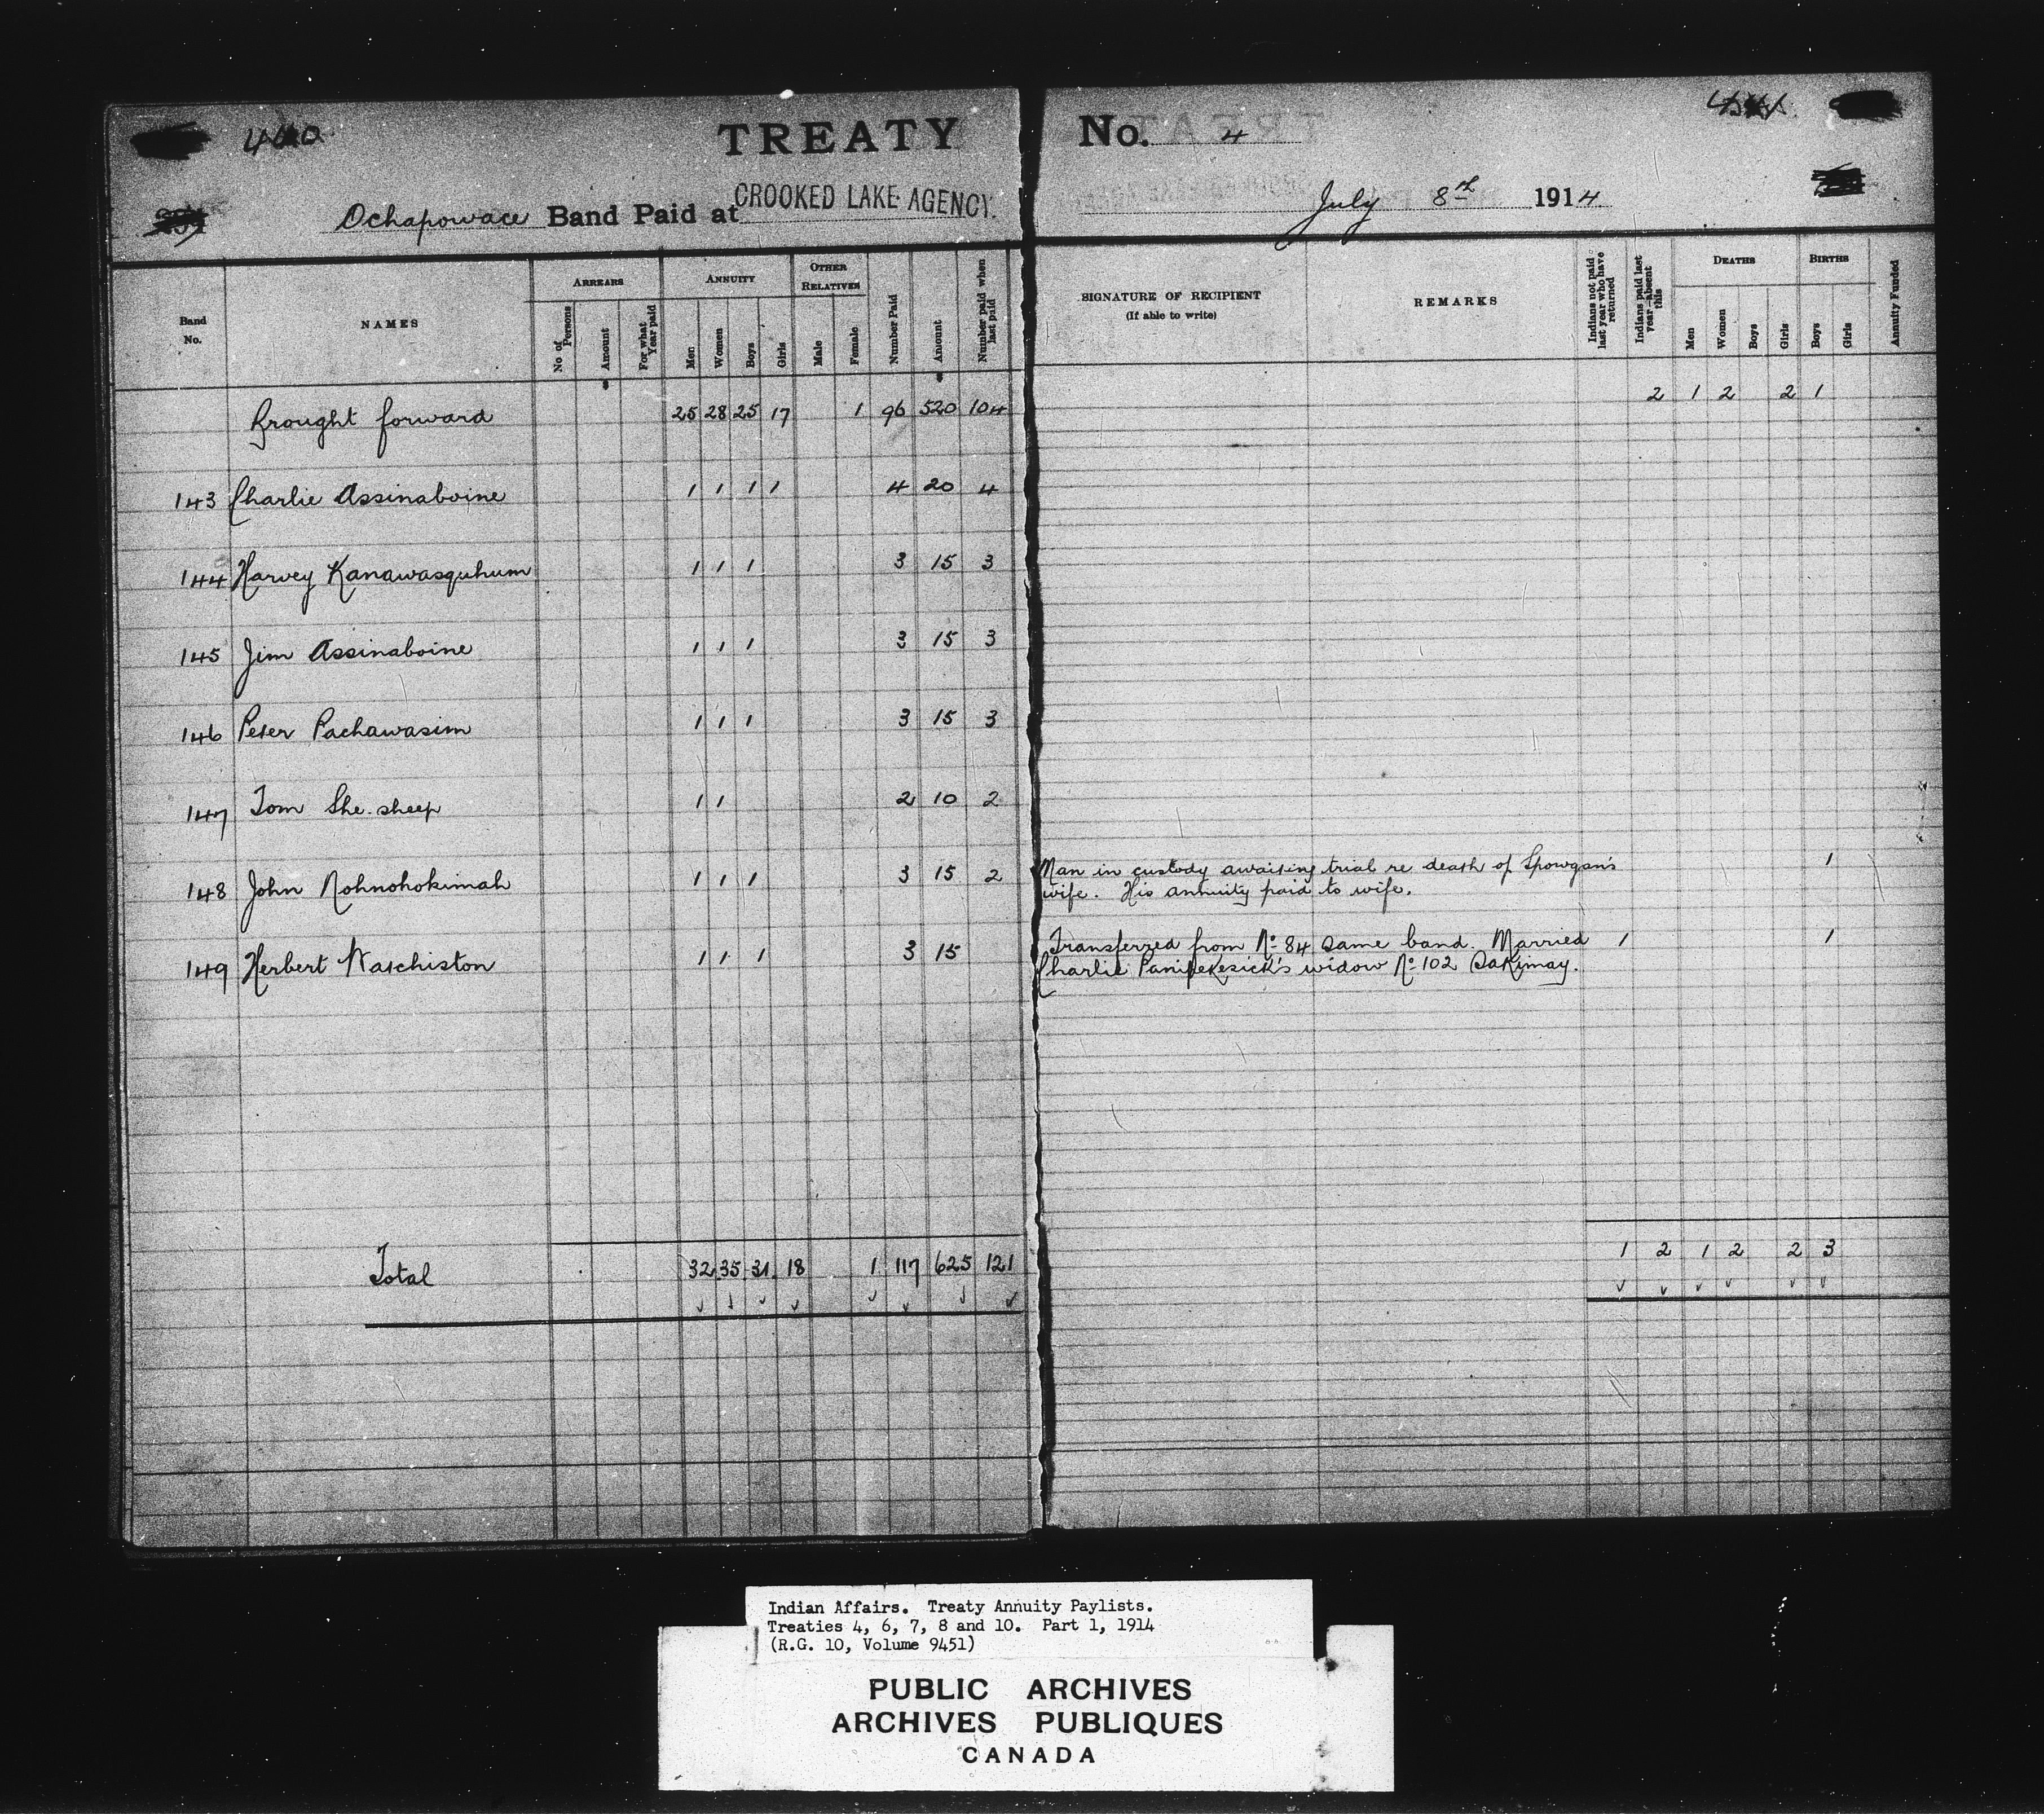 TREATY No. 4
Ochapowace Band Paid at CROOKED LAKE AGENCY. July 8th 1914
Band No.
NAMES
ARREARS
No of Persons
Amount
For what Year paid
ANNUITY
Men
Women
Boys
Girls
OTHER RELATIVES
Male
Female
Number Paid
Amount
Number paid when last paid
SIGNATURE OF RECIPIENT
(If able to write)
REMARKS
Indians not paid last year who have returned
Indians paid last year—absent this
DEATHS
Men
Women
Boys
Girls
BIRTHS
Boys
Girls
Annuity Funded
Brought forward 25 28 25 17 1 96 520 104 2 1 2 2 1
143 Charlie Assinaboine 1 1 1 1 4 20 4
144 Harvey Kanawasquhum 1 1 1 3 15 3
145 Jim Assinaboine 1 1 1 3 15 3
146 Peter Pachawasim 1 1 1 3 15 3
147 Tom She-sheep 1 1 2 10 2
148 John Nohnohokimah 1 1 1 3 15 2 Man in custody awaiting trial re death of Spowgan's 1
wife. His annuity paid to wife.
149 Herbert Watchiston 1 1 1 3 15 Transferred from No 84 same band. Married 1 1
Charlie Panipekesick's widow No 102 Sakimay.
Total 32 35 31 18 1 117 625 121 1 2 1 2 2 3
Indian Affairs. Treaty Annuity Paylists.
Treaties 4, 6, 7, 8 and 10. Part 1, 1914
(R.G. 10, Volume 9451)
PUBLIC ARCHIVES
ARCHIVES PUBLIQUES
CANADA